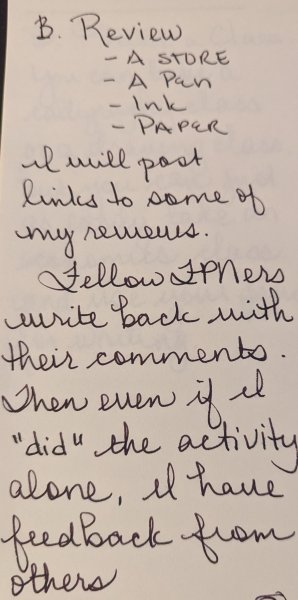 B. Review
- A STORE
- A Pen
- Ink
- PAPER
I will post
links to some of
my reviews.
Fellow FPNers
write back with
their comments.
Then even if I
"did" the activity
alone, I have
feedback from
others